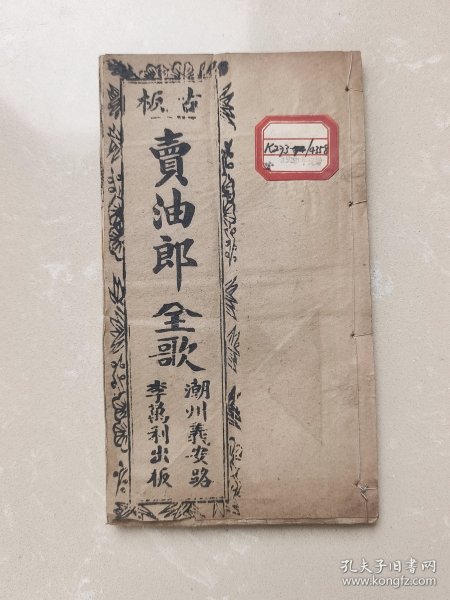 古板
賣油郎全歌
潮州義安路
李萬利出板
孔夫子旧书网
www.kongfz.com